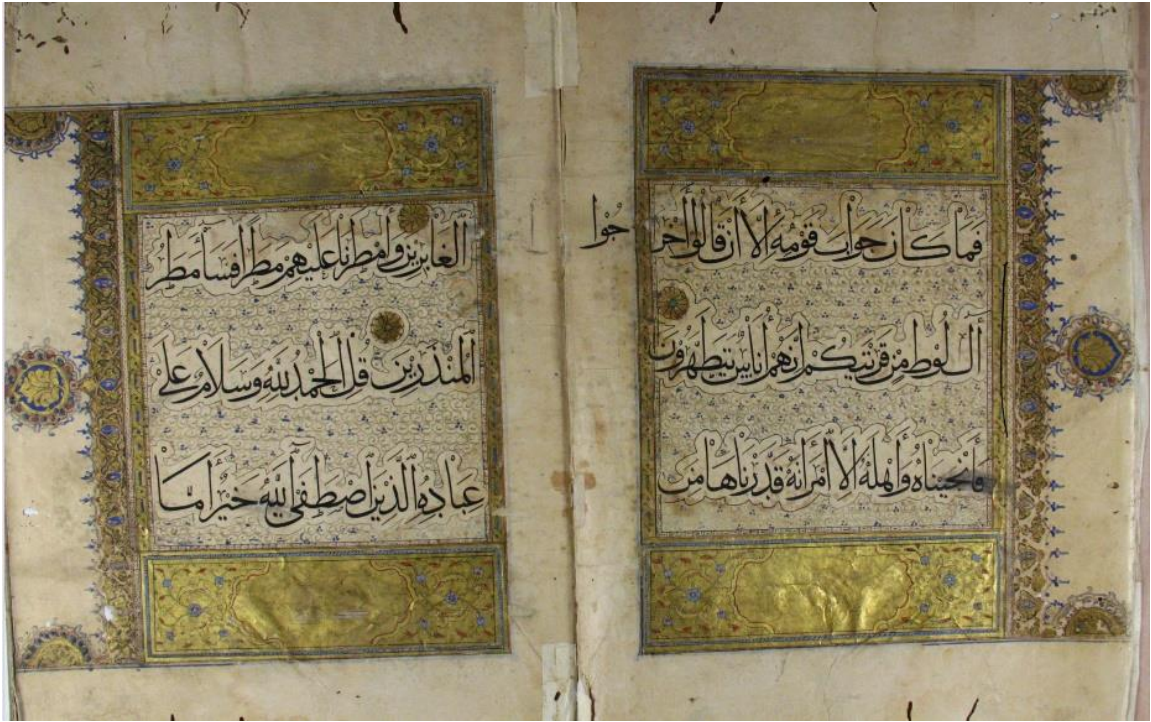 فَمَا كَانَ جَوَابَ قَوْمِهِ إِلَّا أَنْ قَالُوا أَخْرِ جُوا
آلَ لُوطٍ مِنْ قَرْيَتِكُمْ إِنَّهُمْ أُنَاسٌ يَتَطَهَّرُونَ
فَأَنْجَيْنَاهُ وَأَهْلَهُ إِلَّا امْرَأَتَهُ قَدَّرْنَاهَا مِنَ
الْغَابِرِينَ وَأَمْطَرْنَا عَلَيْهِمْ مَطَرًا فَسَاءَ مَطَرُ
الْمُنْذَرِينَ قُلِ الْحَمْدُ لِلَّهِ وَسَلَامٌ عَلَى
عِبَادِهِ الَّذِينَ اصْطَفَى آللَّهُ خَيْرٌ أَمَّا